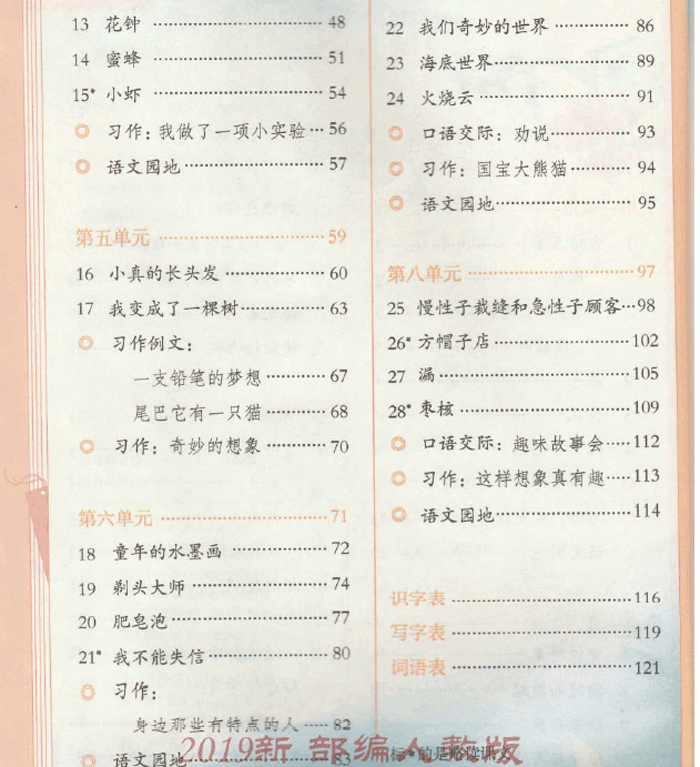 13 花钟 ………… 48
14 蜜蜂 ………… 51
15* 小虾 ………… 54
习作：我做了一项小实验 … 56
语文园地 ………… 57
第五单元 ………… 59
16 小真的长头发 ………… 60
17 我变成了一棵树 ………… 63
习作例文：
一支铅笔的梦想 ………… 67
尾巴它有一只猫 ………… 68
习作：奇妙的想象 ………… 70
第六单元 ………… 71
18 童年的水墨画 ………… 72
19 剃头大师 ………… 74
20 肥皂泡 ………… 77
21* 我不能失信 ………… 80
习作：
身边那些有特点的人 …… 82
语文园地 ………… 83
22 我们奇妙的世界 ………… 86
23 海底世界 ………… 89
24 火烧云 ………… 91
口语交际：劝说 ………… 93
习作：国宝大熊猫 ………… 94
语文园地 ………… 95
第八单元 ………… 97
25 慢性子裁缝和急性子顾客 … 98
26* 方帽子店 ………… 102
27 漏 ………… 105
28* 枣核 ………… 109
口语交际：趣味故事会 …… 112
习作：这样想象真有趣 …… 113
语文园地 ………… 114
识字表 ………… 116
写字表 ………… 119
词语表 ………… 121
标*的是略读课文
2019新 部编人教版